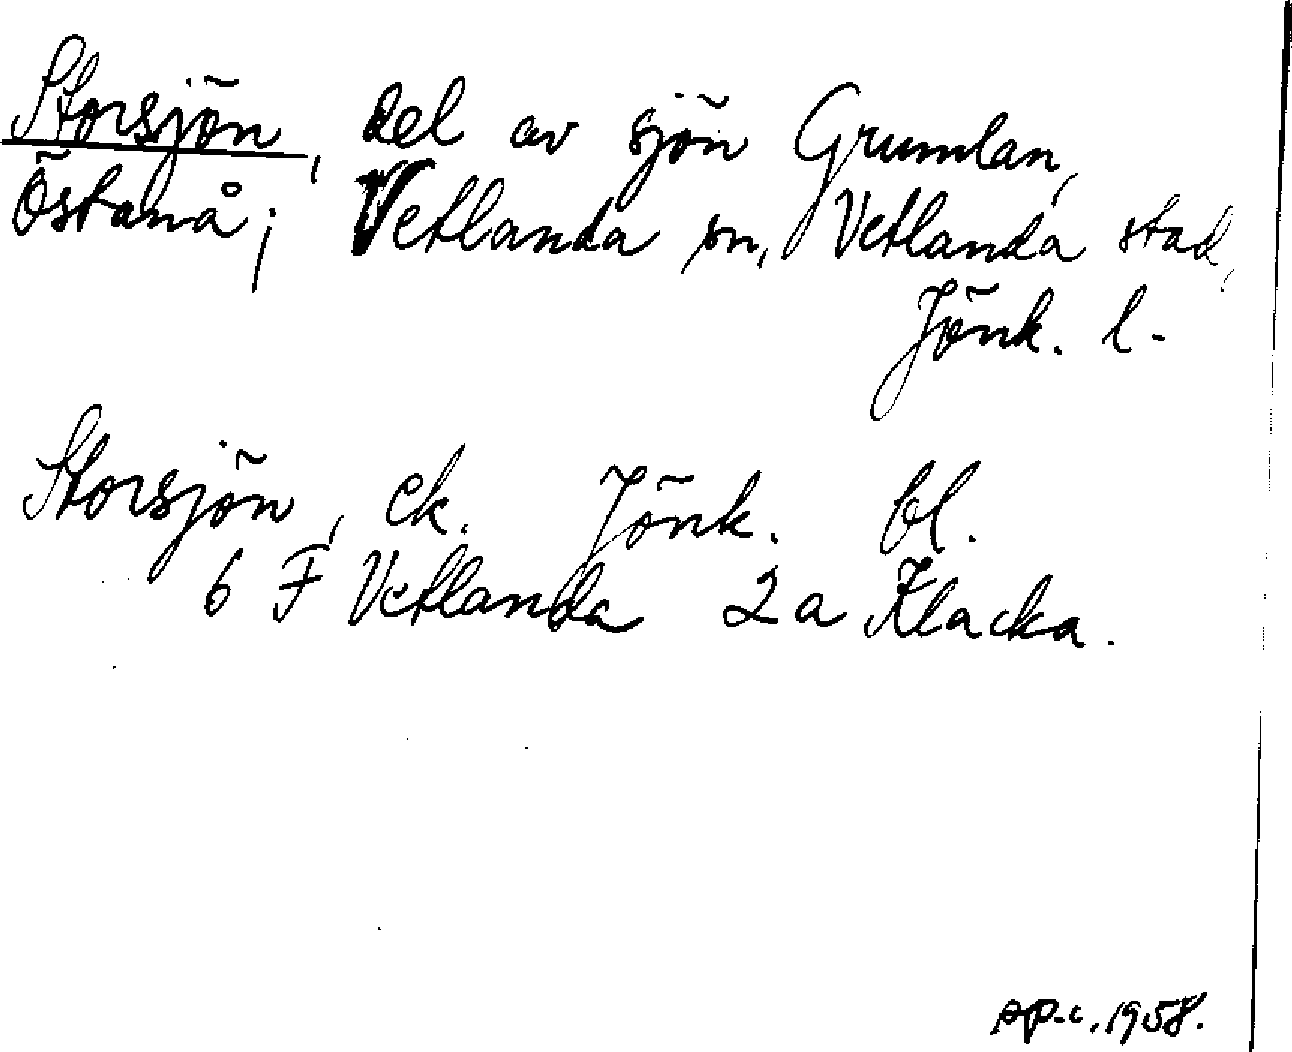 Storsjön, del av sjön Grumlan,
Östanå; Vetlanda sn, Vetlanda stad,
Jönk. l.
Storsjön, ek. Jönk. bl.
6 F Vetlanda 2a Klacka.
1958.